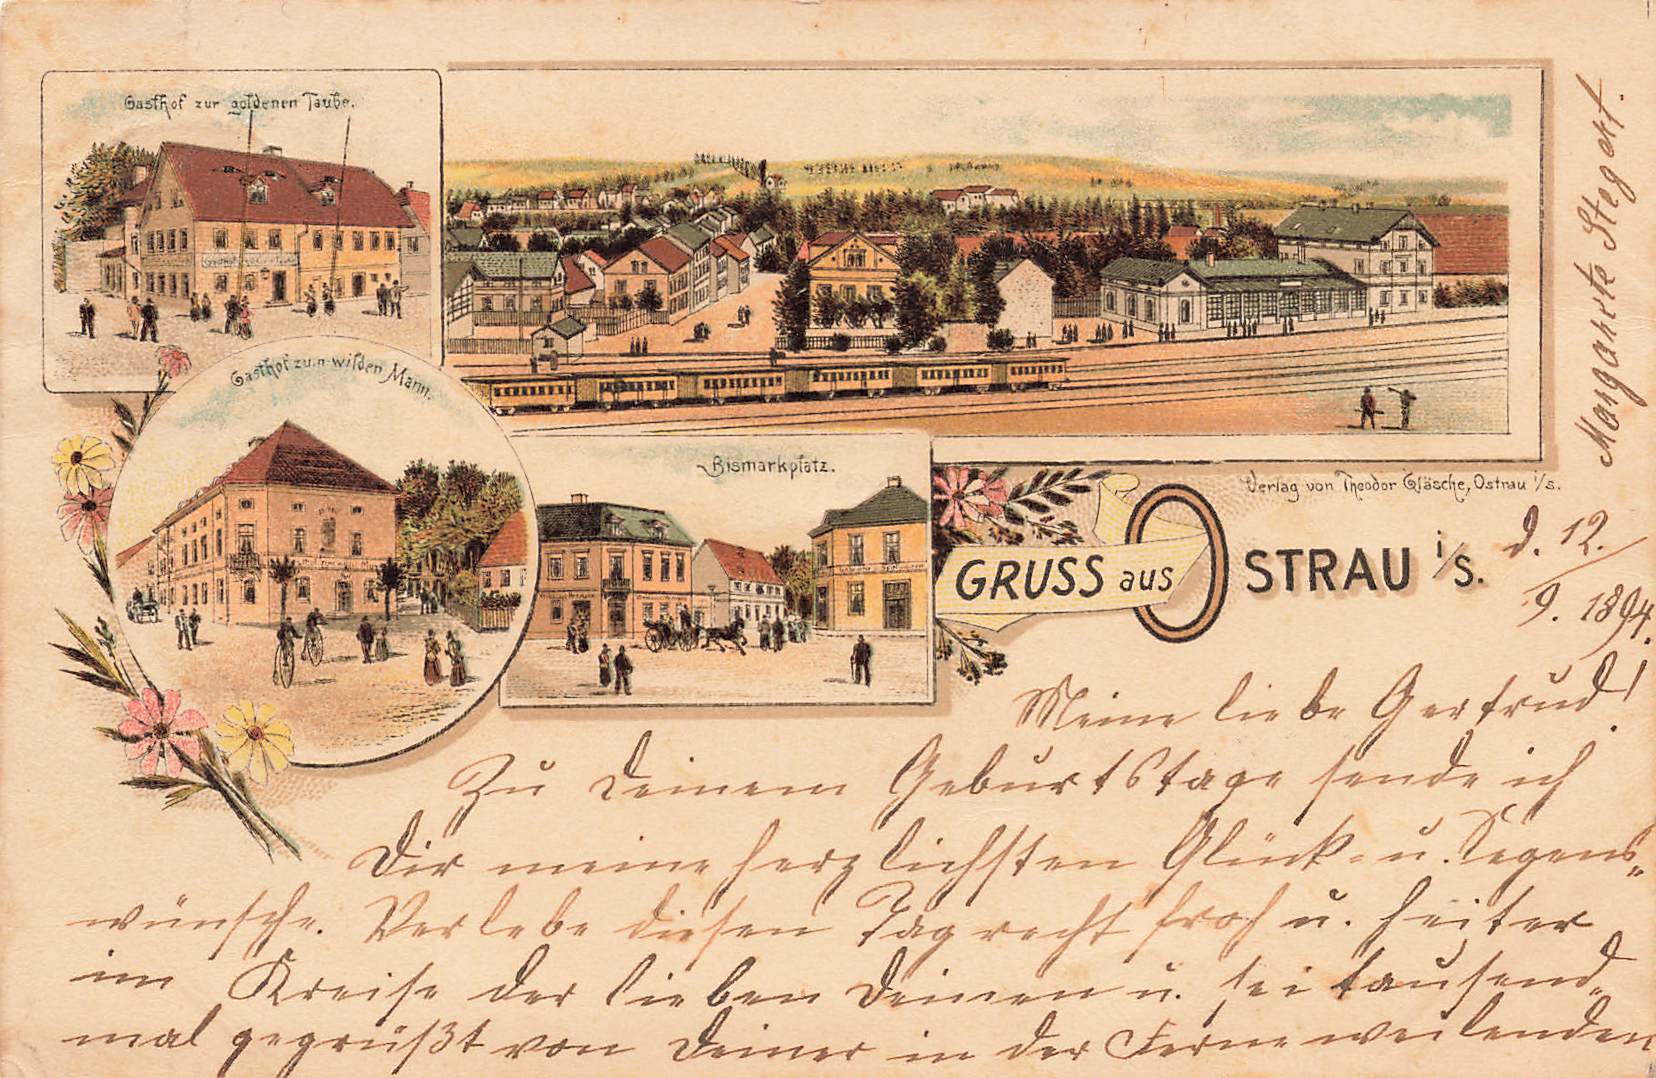 Gasthof zur goldenen Taube.
Gasthof zum wilden Mann.
Bismarkplatz.
Verlag von Theodor Gläsche, Ostrau i/S.
GRUSS aus OSTRAU i/S.
d. 12./9. 1894.
Meine liebe Gertrud!
Zu Deinem Geburtstage sende ich
Dir meine herzlichsten Glück- u. Segens-
wünsche. Verlebe diesen Tag recht froh u. heiter
im Kreise der lieben Deinen u. sei tausend-
mal gegrüßt von Deiner in der Ferne weilenden
Margarete Stegert.